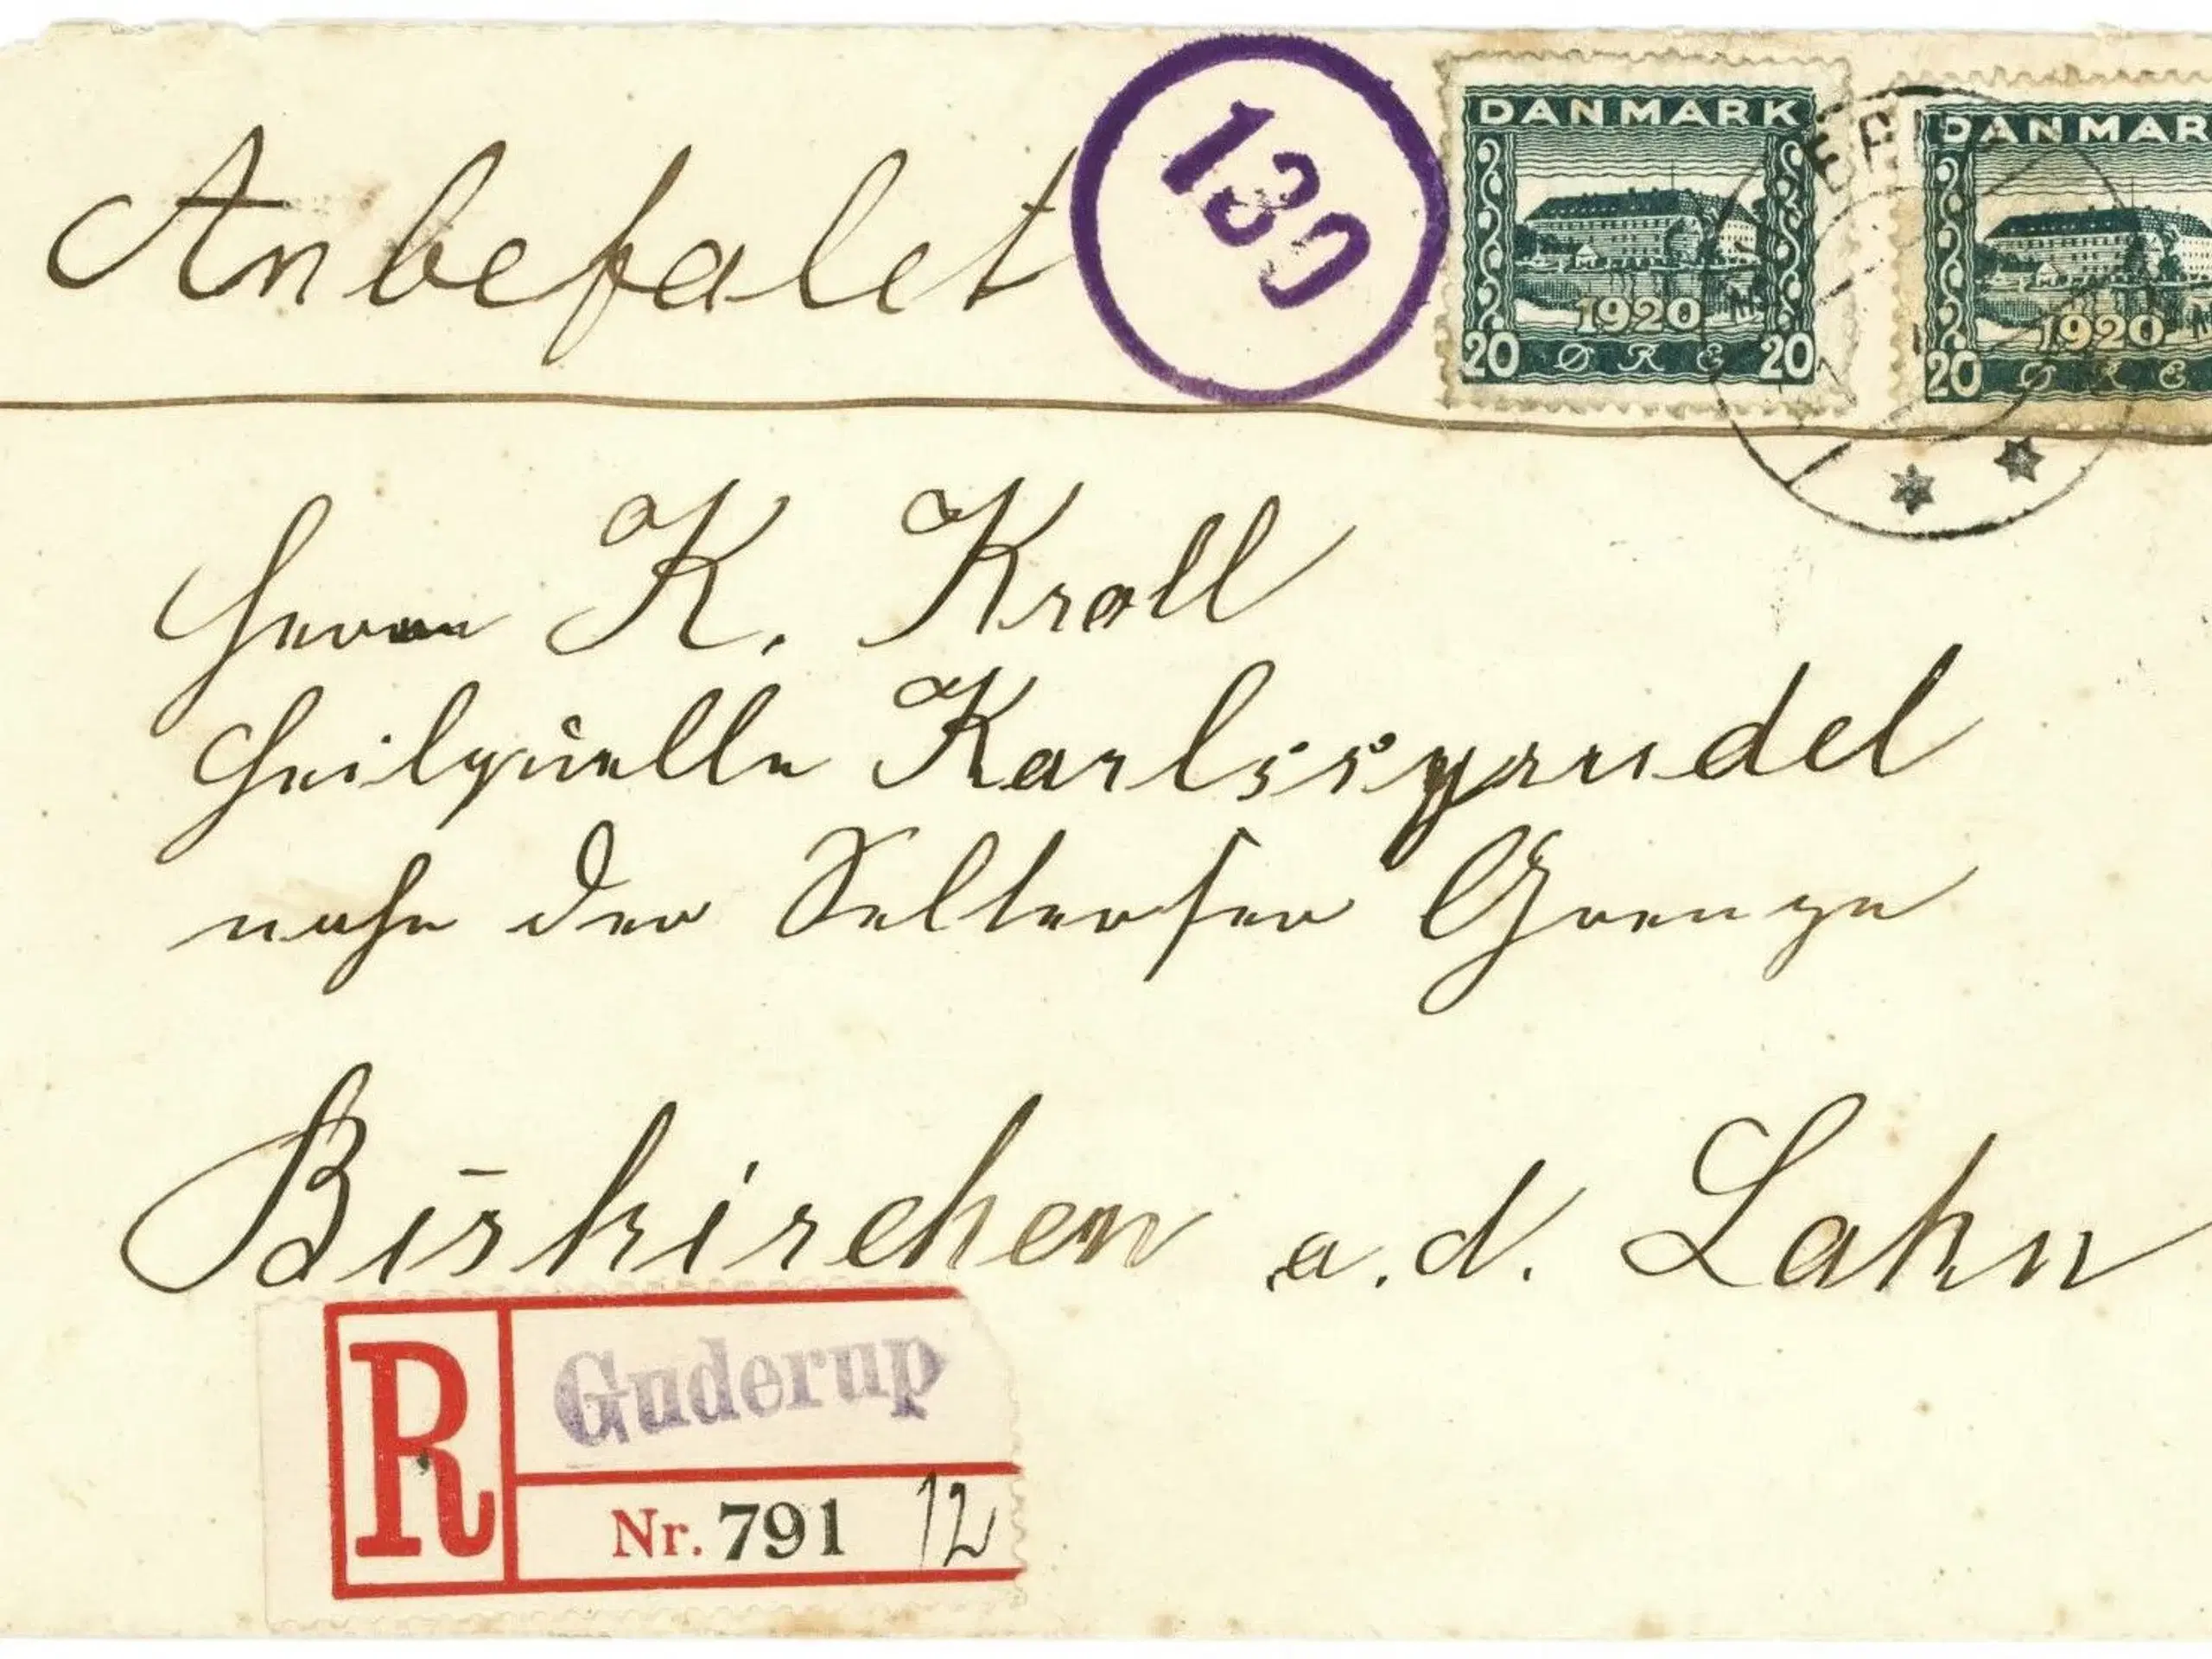 Anbefalet
130
DANMARK
1920
20 ØRE 20
DANMAR
1920
20 ØRE
Herrn K. Kroll
Heilquelle Karlssprudel
nahe der Selterser Grenze
Biskirchen a. d. Lahn
R
Guderup
Nr. 791 12